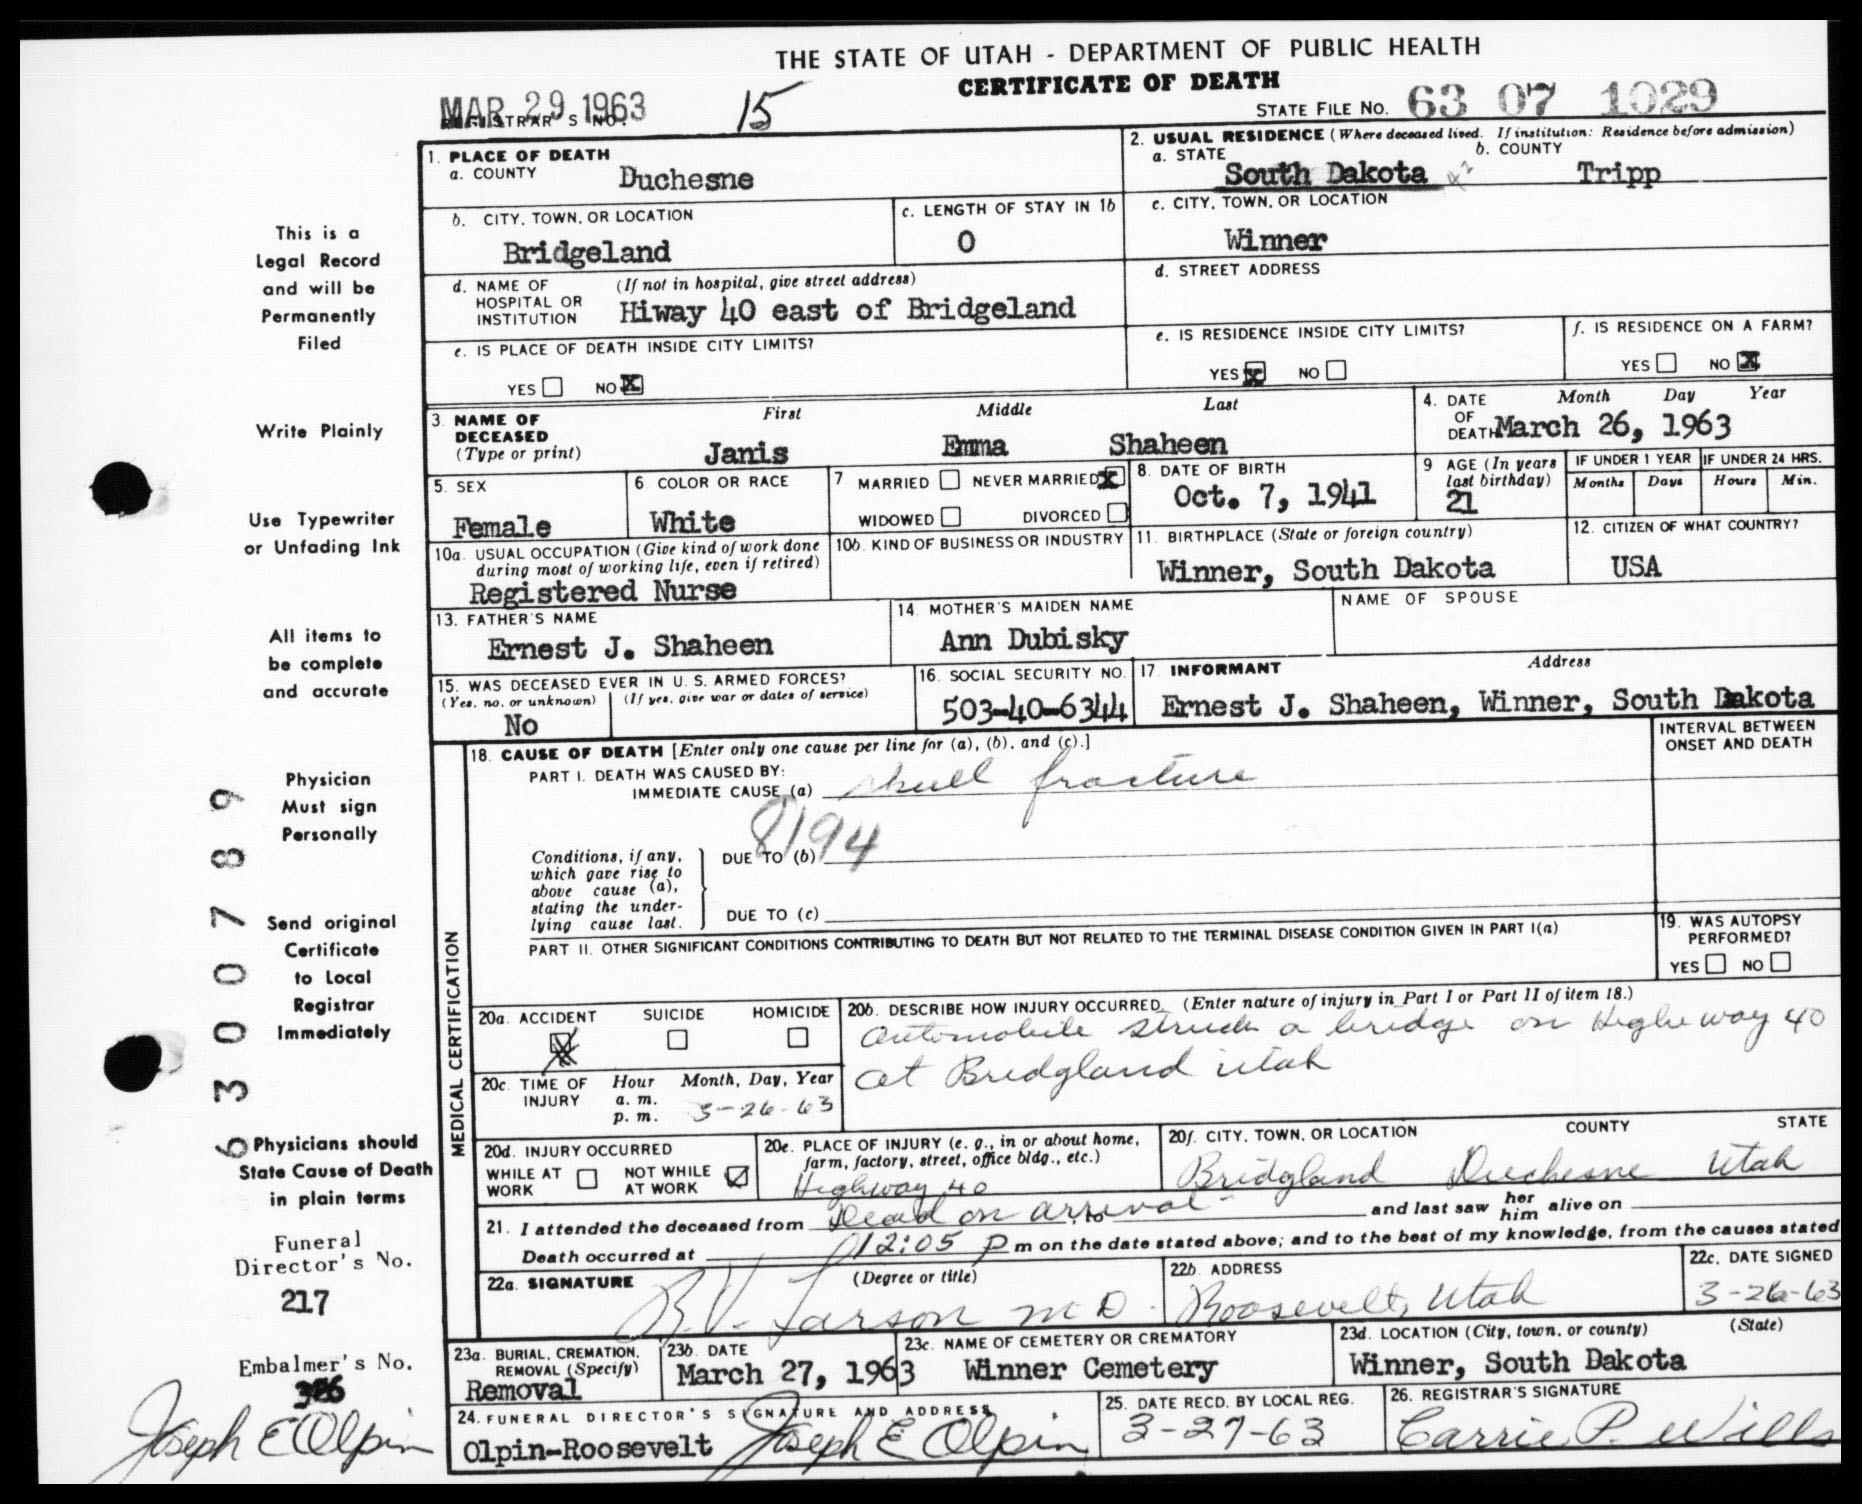 THE STATE OF UTAH - DEPARTMENT OF PUBLIC HEALTH
CERTIFICATE OF DEATH
MAR 29 1963
REGISTRAR'S NO. 15
STATE FILE NO. 63 07 1029
1. PLACE OF DEATH
a. COUNTY Duchesne
2. USUAL RESIDENCE (Where deceased lived. If institution: Residence before admission)
a. STATE South Dakota
b. COUNTY Tripp
b. CITY, TOWN, OR LOCATION
Bridgeland
c. LENGTH OF STAY IN 1b
0
c. CITY, TOWN, OR LOCATION
Winner
d. NAME OF HOSPITAL OR INSTITUTION (If not in hospital, give street address)
Hiway 40 east of Bridgeland
d. STREET ADDRESS
e. IS PLACE OF DEATH INSIDE CITY LIMITS?
YES ☐ NO ☒
e. IS RESIDENCE INSIDE CITY LIMITS?
YES ☒ NO ☐
f. IS RESIDENCE ON A FARM?
YES ☐ NO ☒
3. NAME OF DECEASED (Type or print)
First Middle Last
Janis Emma Shaheen
4. DATE OF DEATH Month Day Year
March 26, 1963
5. SEX
Female
6 COLOR OR RACE
White
7 MARRIED ☐ NEVER MARRIED ☒
WIDOWED ☐ DIVORCED ☐
8. DATE OF BIRTH
Oct. 7, 1941
9 AGE (In years last birthday)
21
IF UNDER 1 YEAR
Months Days
IF UNDER 24 HRS.
Hours Min.
10a. USUAL OCCUPATION (Give kind of work done during most of working life, even if retired)
Registered Nurse
10b. KIND OF BUSINESS OR INDUSTRY
11. BIRTHPLACE (State or foreign country)
Winner, South Dakota
12. CITIZEN OF WHAT COUNTRY?
USA
13. FATHER'S NAME
Ernest J. Shaheen
14. MOTHER'S MAIDEN NAME
Ann Dubisky
NAME OF SPOUSE
15. WAS DECEASED EVER IN U. S. ARMED FORCES?
(Yes, no, or unknown) (If yes, give war or dates of service)
No
16. SOCIAL SECURITY NO.
503-40-6344
17. INFORMANT Address
Ernest J. Shaheen, Winner, South Dakota
18. CAUSE OF DEATH [Enter only one cause per line for (a), (b), and (c).]
INTERVAL BETWEEN ONSET AND DEATH
PART I. DEATH WAS CAUSED BY:
IMMEDIATE CAUSE (a) skull fracture
8194
Conditions, if any, which gave rise to above cause (a), stating the underlying cause last.
DUE TO (b)
DUE TO (c)
PART II. OTHER SIGNIFICANT CONDITIONS CONTRIBUTING TO DEATH BUT NOT RELATED TO THE TERMINAL DISEASE CONDITION GIVEN IN PART I(a)
19. WAS AUTOPSY PERFORMED?
YES ☐ NO ☐
MEDICAL CERTIFICATION
20a. ACCIDENT ☒ SUICIDE ☐ HOMICIDE ☐
20b. DESCRIBE HOW INJURY OCCURRED. (Enter nature of injury in Part I or Part II of item 18.)
Automobile struck a bridge on Highway 40
at Bridgland Utah
20c. TIME OF INJURY Hour a. m. p. m. Month, Day, Year
3-26-63
20d. INJURY OCCURRED
WHILE AT WORK ☐ NOT WHILE AT WORK ☑
20e. PLACE OF INJURY (e. g., in or about home, farm, factory, street, office bldg., etc.)
Highway 40
20f. CITY, TOWN, OR LOCATION COUNTY STATE
Bridgland Duchesne Utah
21. I attended the deceased from Dead on arrival, to and last saw her him alive on
Death occurred at 12:05 p m on the date stated above; and to the best of my knowledge, from the causes stated
22a. SIGNATURE (Degree or title)
R.V. Larson M D.
22b. ADDRESS
Roosevelt, Utah
22c. DATE SIGNED
3-26-63
23a. BURIAL, CREMATION, REMOVAL (Specify)
Removal
23b. DATE
March 27, 1963
23c. NAME OF CEMETERY OR CREMATORY
Winner Cemetery
23d. LOCATION (City, town, or county) (State)
Winner, South Dakota
24. FUNERAL DIRECTOR'S SIGNATURE AND ADDRESS
Olpin-Roosevelt Joseph E Olpin
25. DATE RECD. BY LOCAL REG.
3-27-63
26. REGISTRAR'S SIGNATURE
Carrie P. Wills
This is a
Legal Record
and will be
Permanently
Filed
Write Plainly
Use Typewriter
or Unfading Ink
All items to
be complete
and accurate
Physician
Must sign
Personally
Send original
Certificate
to Local
Registrar
Immediately
Physicians should
State Cause of Death
in plain terms
6300789
Funeral
Director's No.
217
Embalmer's No.
Joseph E Olpin